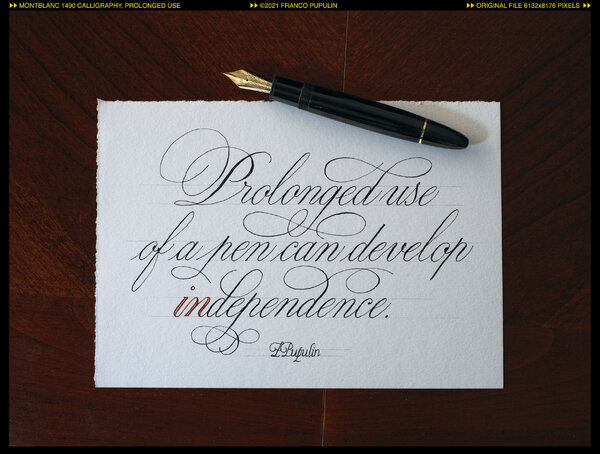 MONTBLANC 1490 CALLIGRAPHY, PROLONGED USE
©2021 FRANCO PUPULIN
ORIGINAL FILE 6132x8176 PIXELS
Prolonged use
of a pen can develop
independence.
FPupulin